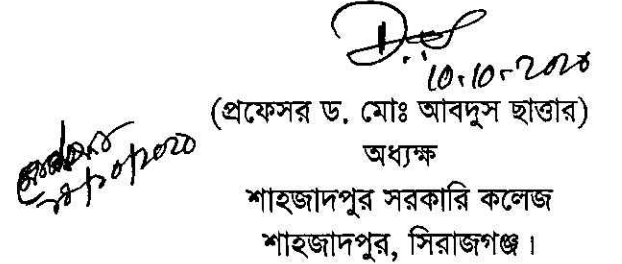 10.10.2020
(প্রফেসর ড. মোঃ আবদুস ছাত্তার)
অধ্যক্ষ
শাহজাদপুর সরকারি কলেজ
শাহজাদপুর, সিরাজগঞ্জ।